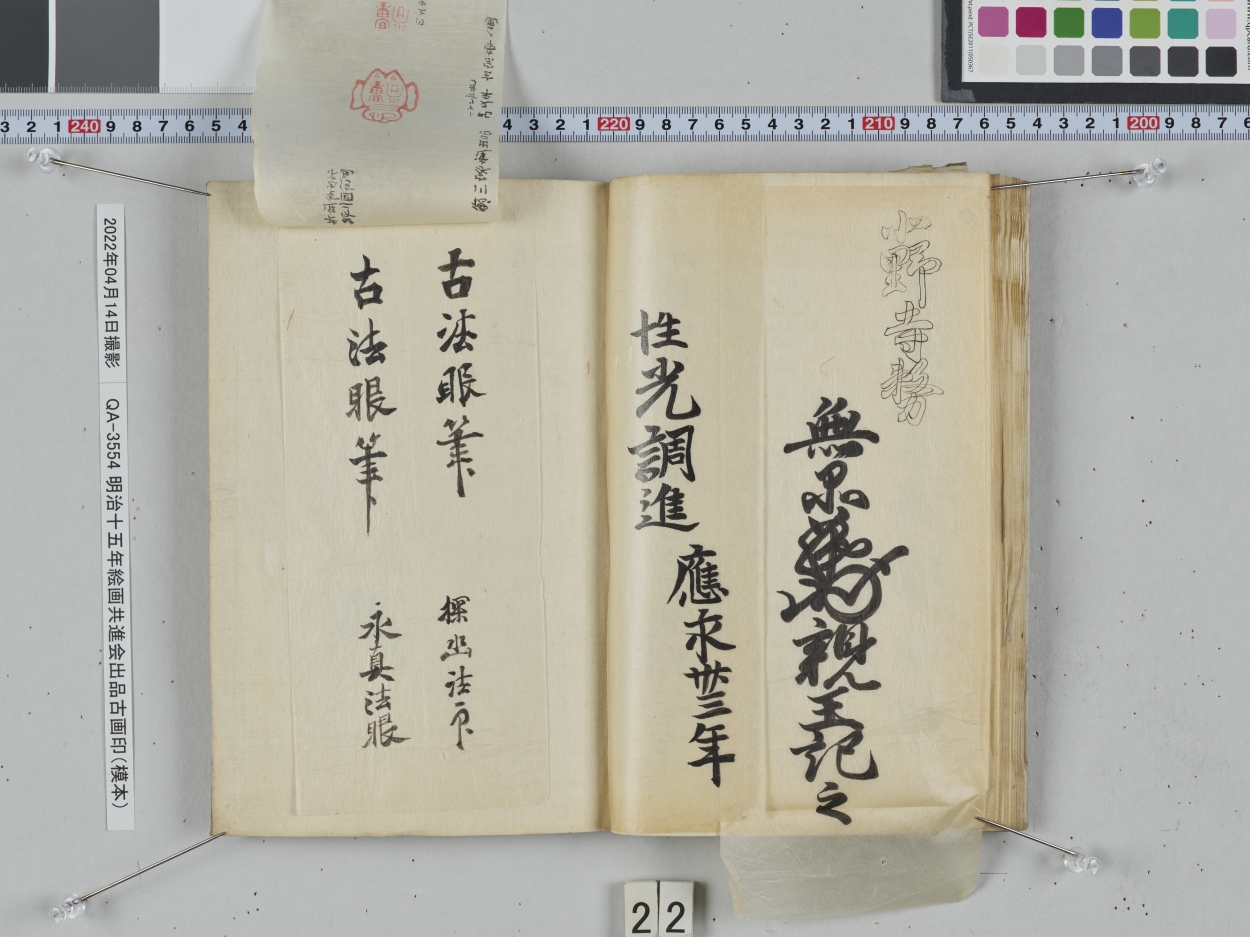 小野寺務
無品
親王記之
性光調進
應永卅三年
古法眼筆
探幽法印
古法眼筆
永真法眼
2022年04月14日撮影
QA-3554 明治十五年絵画共進会出品古画印(模本)
3 2 1 240 9 8 7 6 5 4
4 3 2 1 220 9 8 7 6 5 4 3 2 1 210 9 8 7 6 5 4 3 2 1 200 9 8 7 6
22